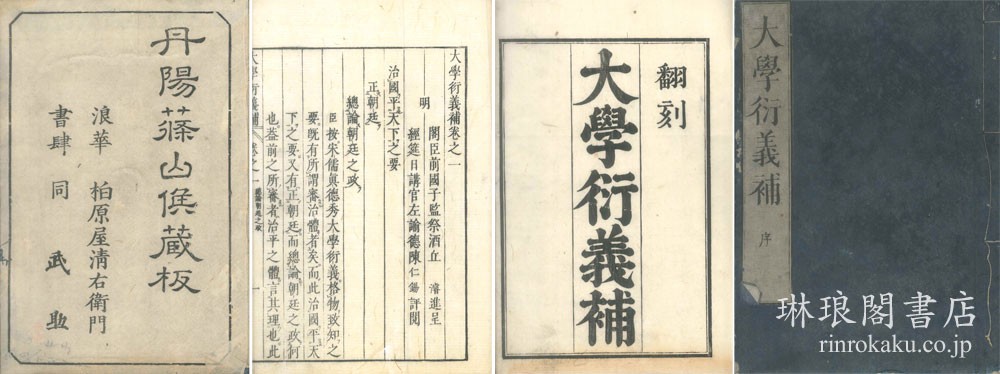 大學衍義補
序
翻刻
大學衍義補
大學衍義補卷之一
明
閣臣前國子監祭酒丘 濬進呈
經筵日講官左諭德陳仁錫評閱
治國平天下之要
正朝廷
總論朝廷之政
臣按宋儒眞德秀大學衍義格物致知之
要既有所謂審治體者矣而此治國平天
下之要又有正朝廷而總論朝廷之政何
也蓋前之所審者治平之體言其理也此
大學衍義補 卷之一 總論朝廷之政 一
丹陽篠山侯蔵板
浪華 柏原屋清右衛門
書肆 同 武
琳琅閣書店
rinrokaku.co.jp